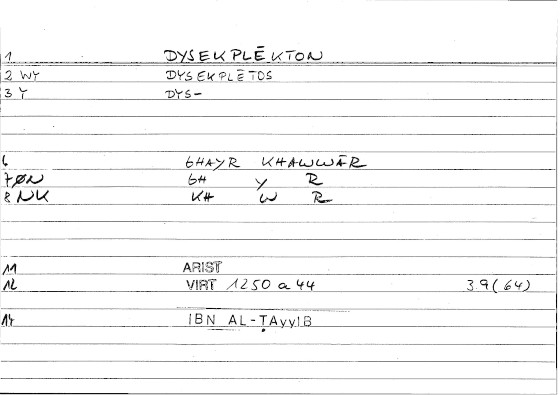 1 DYSEKPLĒKTON
2 WY DYSEKPLĒTOS
3 Y DYS-
6 GHAYR KHAWWĀR
7 ØN GH Y R
8 NK KH W R
11 ARIST
12 VIRT 1250 a 44 3.9(64)
14 IBN AL-ṬAYYIB